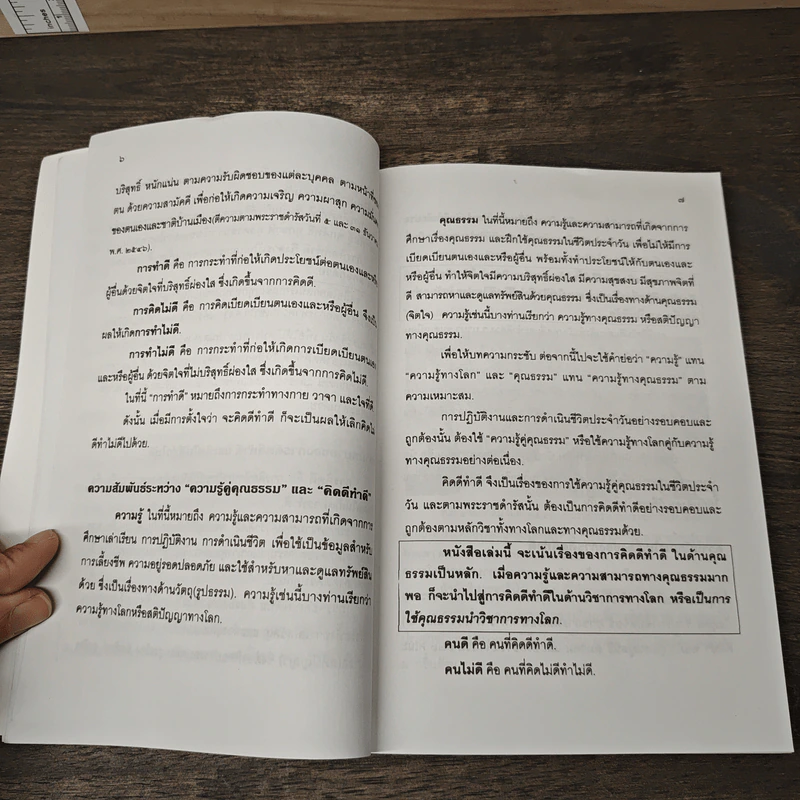 inches
๖
บริสุทธิ์ หนักแน่น ตามความรับผิดชอบของแต่ละบุคคล ตามหน้าที่
ตน ด้วยความสามัคคี เพื่อก่อให้เกิดความเจริญ ความผาสุก
ของตนเองและชาติบ้านเมือง(ตีความตามพระราชดำรัสวันที่ ๕ และ ๓๑
พ.ศ. ๒๕๔๖).
การทำดี คือ การกระทำที่ก่อให้เกิดประโยชน์ต่อตนเองและหรือ
ผู้อื่นด้วยจิตใจที่บริสุทธิ์ผ่องใส ซึ่งเกิดขึ้นจากการคิดดี.
การคิดไม่ดี คือ การคิดเบียดเบียนตนเองและหรือผู้อื่น จึง
ผลให้เกิดการทำไม่ดี.
การทำไม่ดี คือ การกระทำที่ก่อให้เกิดการเบียดเบียนตนเอง
และหรือผู้อื่น ด้วยจิตใจที่ไม่บริสุทธิ์ผ่องใส ซึ่งเกิดขึ้นจากการคิดไม่ดี.
ในที่นี้ "การทำดี" หมายถึงการกระทำทางกาย วาจา และใจที่ดี
ดังนั้น เมื่อมีการตั้งใจว่า จะคิดดีทำดี ก็จะเป็นผลให้เลิกคิดไม่
ดีทำไม่ดีไปด้วย.
ความสัมพันธ์ระหว่าง "ความรู้คู่คุณธรรม" และ "คิดดีทำดี"
ความรู้ ในที่นี้หมายถึง ความรู้และความสามารถที่เกิดจากการ
ศึกษาเล่าเรียน การปฏิบัติงาน การดำเนินชีวิต เพื่อใช้เป็นข้อมูลสำหรับ
การเลี้ยงชีพ ความอยู่รอดปลอดภัย และใช้สำหรับหาและดูแลทรัพย์สิน
ด้วย ซึ่งเป็นเรื่องทางด้านวัตถุ(รูปธรรม). ความรู้เช่นนี้บางท่านเรียกว่า
ความรู้ทางโลกหรือสติปัญญาทางโลก.
๗
คุณธรรม ในที่นี้หมายถึง ความรู้และความสามารถที่เกิดจากการ
ศึกษาเรื่องคุณธรรม และฝึกใช้คุณธรรมในชีวิตประจำวัน เพื่อไม่ให้มีการ
เบียดเบียนตนเองและหรือผู้อื่น พร้อมทั้งทำประโยชน์ให้กับตนเองและ
หรือผู้อื่น ทำให้จิตใจมีความบริสุทธิ์ผ่องใส มีความสุขสงบ มีสุขภาพจิตที่
ดี สามารถหาและดูแลทรัพย์สินด้วยคุณธรรม ซึ่งเป็นเรื่องทางด้านคุณธรรม
(จิตใจ) ความรู้เช่นนี้บางท่านเรียกว่า ความรู้ทางคุณธรรม หรือสติปัญญา
ทางคุณธรรม.
เพื่อให้บทความกระชับ ต่อจากนี้ไปจะใช้คำย่อว่า "ความรู้" แทน
"ความรู้ทางโลก" และ "คุณธรรม" แทน "ความรู้ทางคุณธรรม" ตาม
ความเหมาะสม.
การปฏิบัติงานและการดำเนินชีวิตประจำวันอย่างรอบคอบและ
ถูกต้องนั้น ต้องใช้ "ความรู้คู่คุณธรรม" หรือใช้ความรู้ทางโลกคู่กับความรู้
ทางคุณธรรมอย่างต่อเนื่อง.
คิดดีทำดี จึงเป็นเรื่องของการใช้ความรู้คู่คุณธรรมในชีวิตประจำ
วัน และตามพระราชดำรัสนั้น ต้องเป็นการคิดดีทำดีอย่างรอบคอบและ
ถูกต้องตามหลักวิชาทั้งทางโลกและทางคุณธรรมด้วย.
หนังสือเล่มนี้ จะเน้นเรื่องของการคิดดีทำดี ในด้านคุณ
ธรรมเป็นหลัก. เมื่อความรู้และความสามารถทางคุณธรรมมาก
พอ ก็จะนำไปสู่การคิดดีทำดีในด้านวิชาการทางโลก หรือเป็นการ
ใช้คุณธรรมนำวิชาการทางโลก.
คนดี คือ คนที่คิดดีทำดี.
คนไม่ดี คือ คนที่คิดไม่ดีทำไม่ดี.